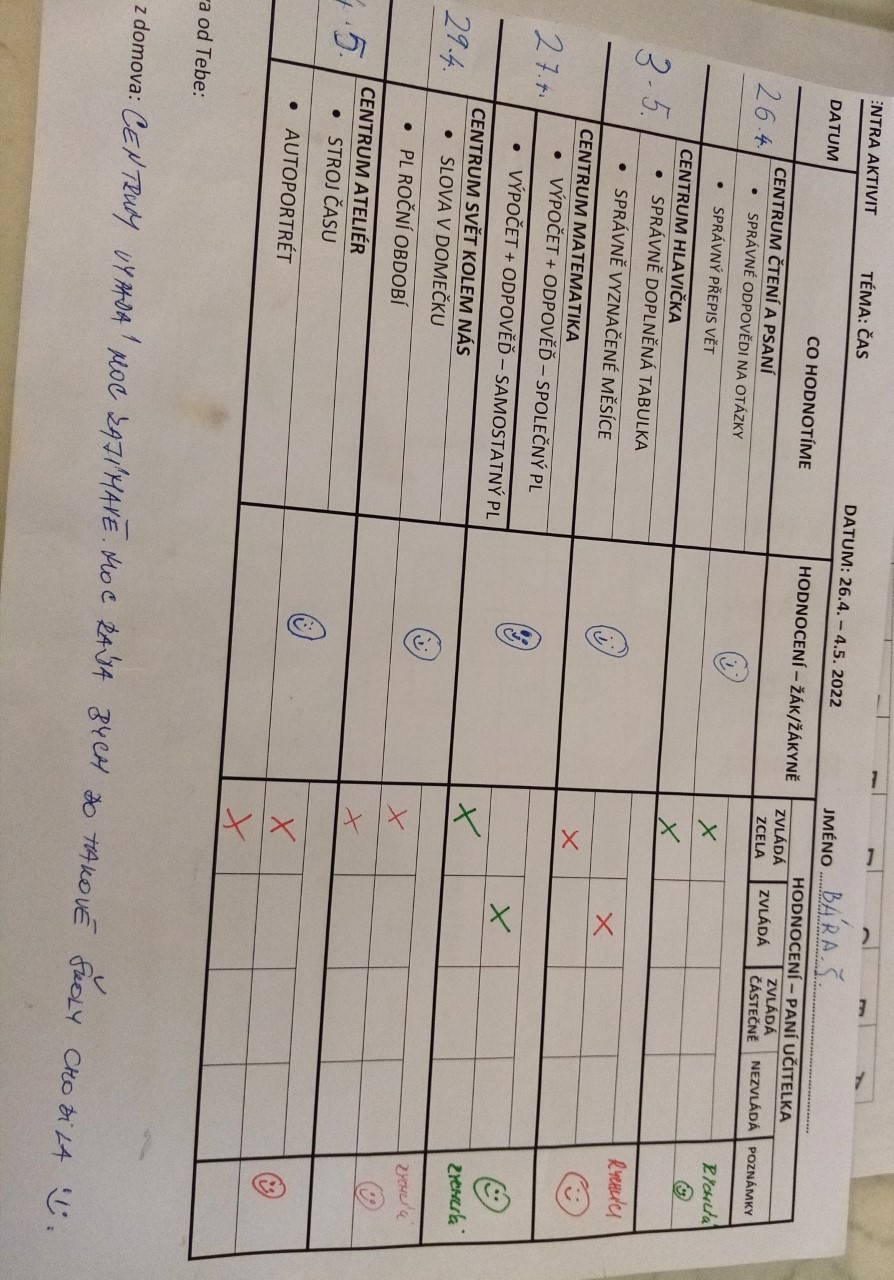 :NTRA AKTIVIT TÉMA: ČAS DATUM: 26.4. – 4.5. 2022 JMÉNO BÁRA Š.
DATUM CO HODNOTÍME HODNOCENÍ – ŽÁK/ŽÁKYNĚ HODNOCENÍ – PANÍ UČITELKA
ZVLÁDÁ ZCELA ZVLÁDÁ ZVLÁDÁ ČÁSTEČNĚ NEZVLÁDÁ POZNÁMKY
26.4. CENTRUM ČTENÍ A PSANÍ
• SPRÁVNÉ ODPOVĚDI NA OTÁZKY X RYCHLÁ
• SPRÁVNÝ PŘEPIS VĚT X
3.5. CENTRUM HLAVIČKA
• SPRÁVNĚ DOPLNĚNÁ TABULKA X
• SPRÁVNĚ VYZNAČENÉ MĚSÍCE X
27.4. CENTRUM MATEMATIKA
• VÝPOČET + ODPOVĚĎ – SPOLEČNÝ PL X
• VÝPOČET + ODPOVĚĎ – SAMOSTATNÝ PL X
29.4. CENTRUM SVĚT KOLEM NÁS
• SLOVA V DOMEČKU X
• PL ROČNÍ OBDOBÍ X
4.5. CENTRUM ATELIÉR
• STROJ ČASU X
• AUTOPORTRÉT X
va od Tebe:
z domova: CENTRUM VYPADÁ MOC ZAJÍMAVĚ. MOC RÁDA BYCH DO TAKOVÉ ŠKOLY CHODILA :).